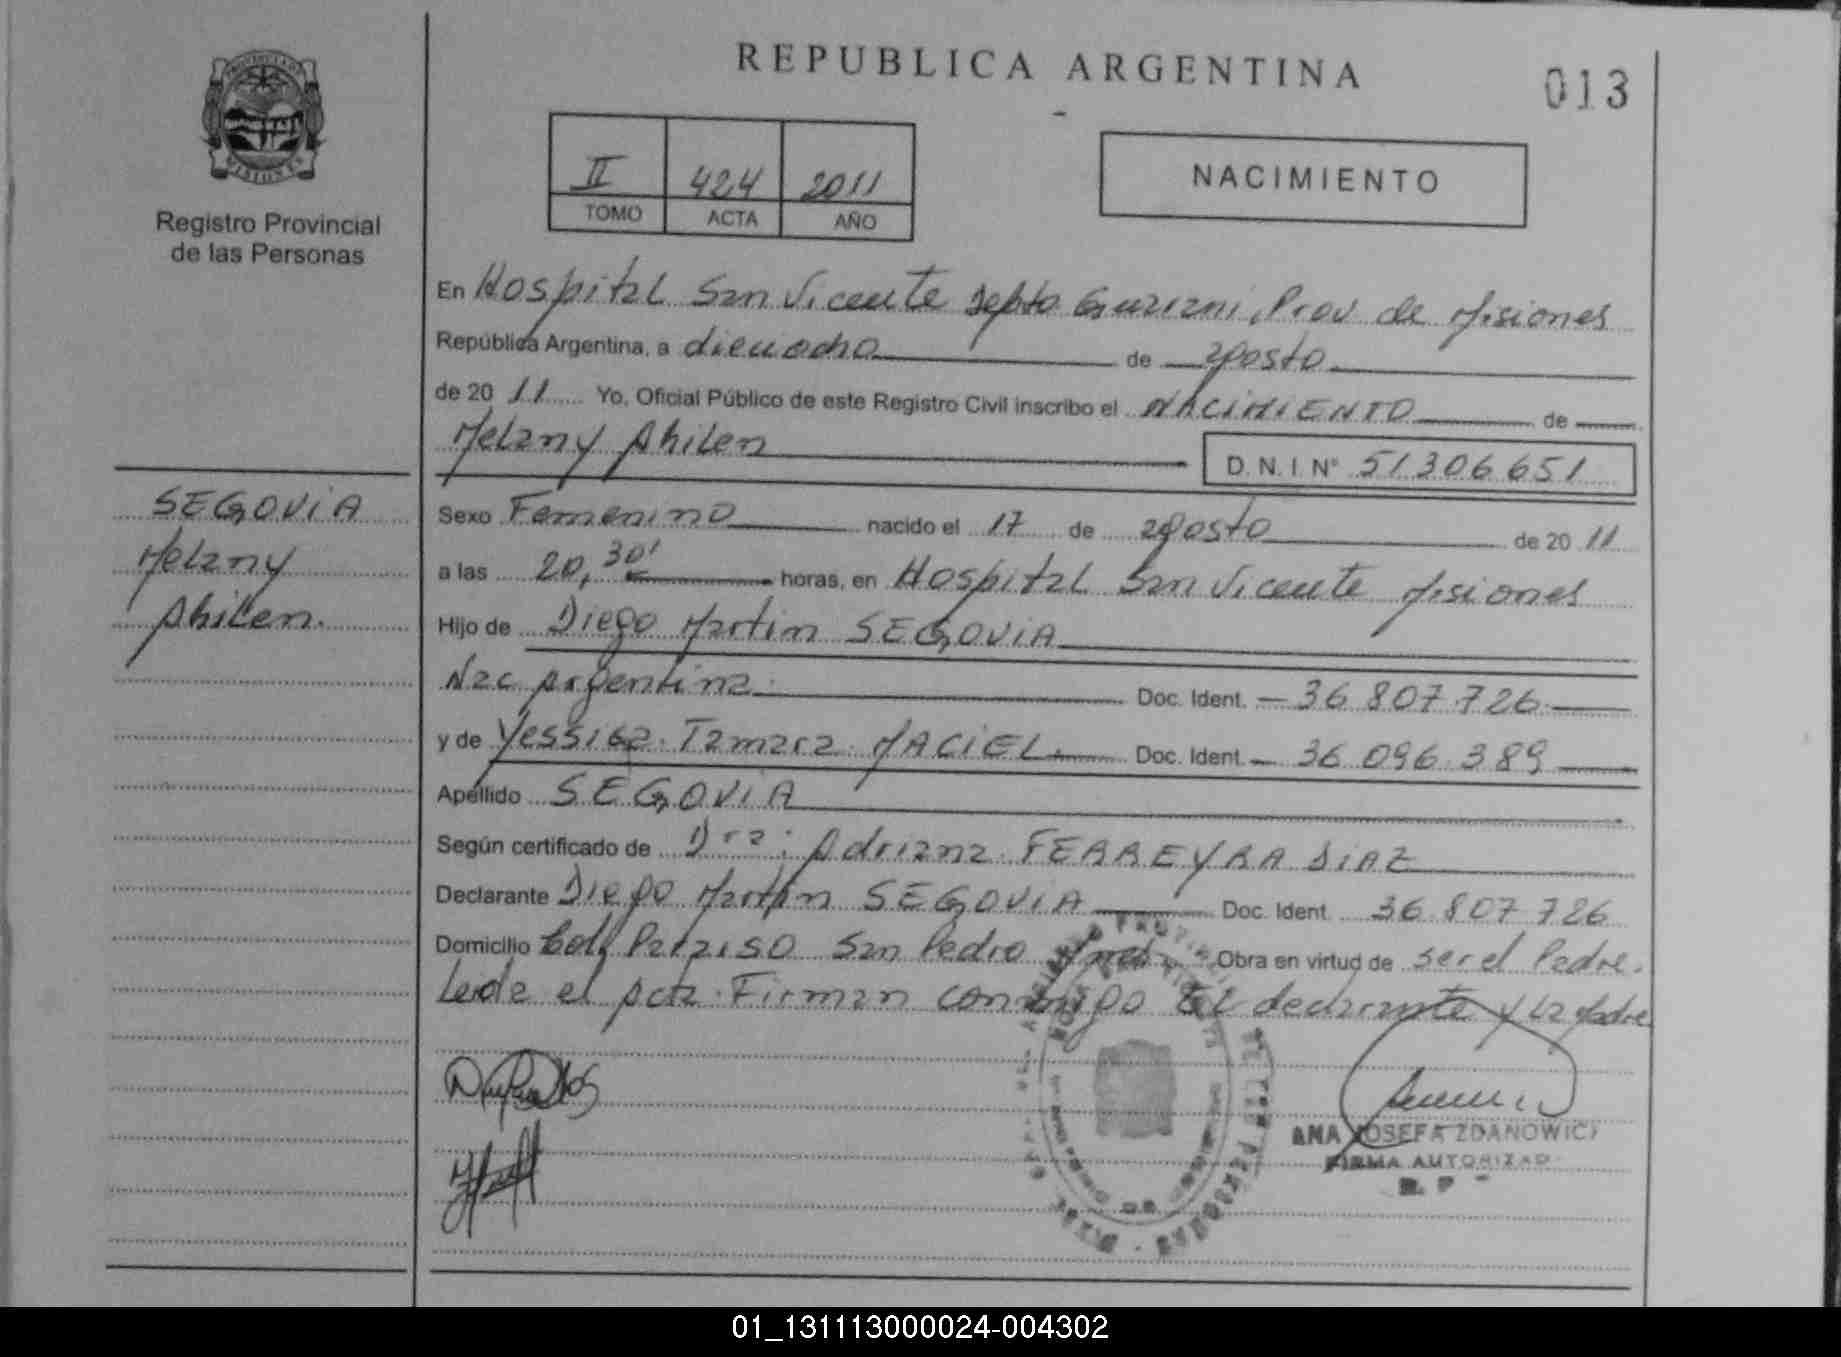 REPUBLICA ARGENTINA
013
PROVINCIA DE
MISIONES
Registro Provincial
de las Personas
II 424 2011
TOMO ACTA AÑO
NACIMIENTO
En Hospital San Vicente Depto Guarani, Prov de Misiones
República Argentina, a dieciocho de agosto
de 20 11 Yo, Oficial Público de este Registro Civil inscribo el NACIMIENTO de
Melany Ahilen
D. N. I. N° 51306651
SEGOVIA
Melany
Ahilen.
Sexo Femenino nacido el 17 de agosto de 20 11
a las 20,30' horas, en Hospital San Vicente Misiones
Hijo de Diego Martin SEGOVIA
Nac Argentina. Doc. Ident. 36 807 726
y de Yessica Tamara MACIEL. Doc. Ident. 36 096 389
Apellido SEGOVIA
Según certificado de Dra: Adriana FERREYRA DIAZ
Declarante Diego Martin SEGOVIA Doc. Ident. 36 807 726
Domicilio Col. Paraiso San Pedro Obra en virtud de ser el Padre.
Leida el Acta. Firman conmigo El declarante y La Madre
ANA JOSEFA ZDANOWICZ
FIRMA AUTORIZAD
R. P
01_131113000024-004302